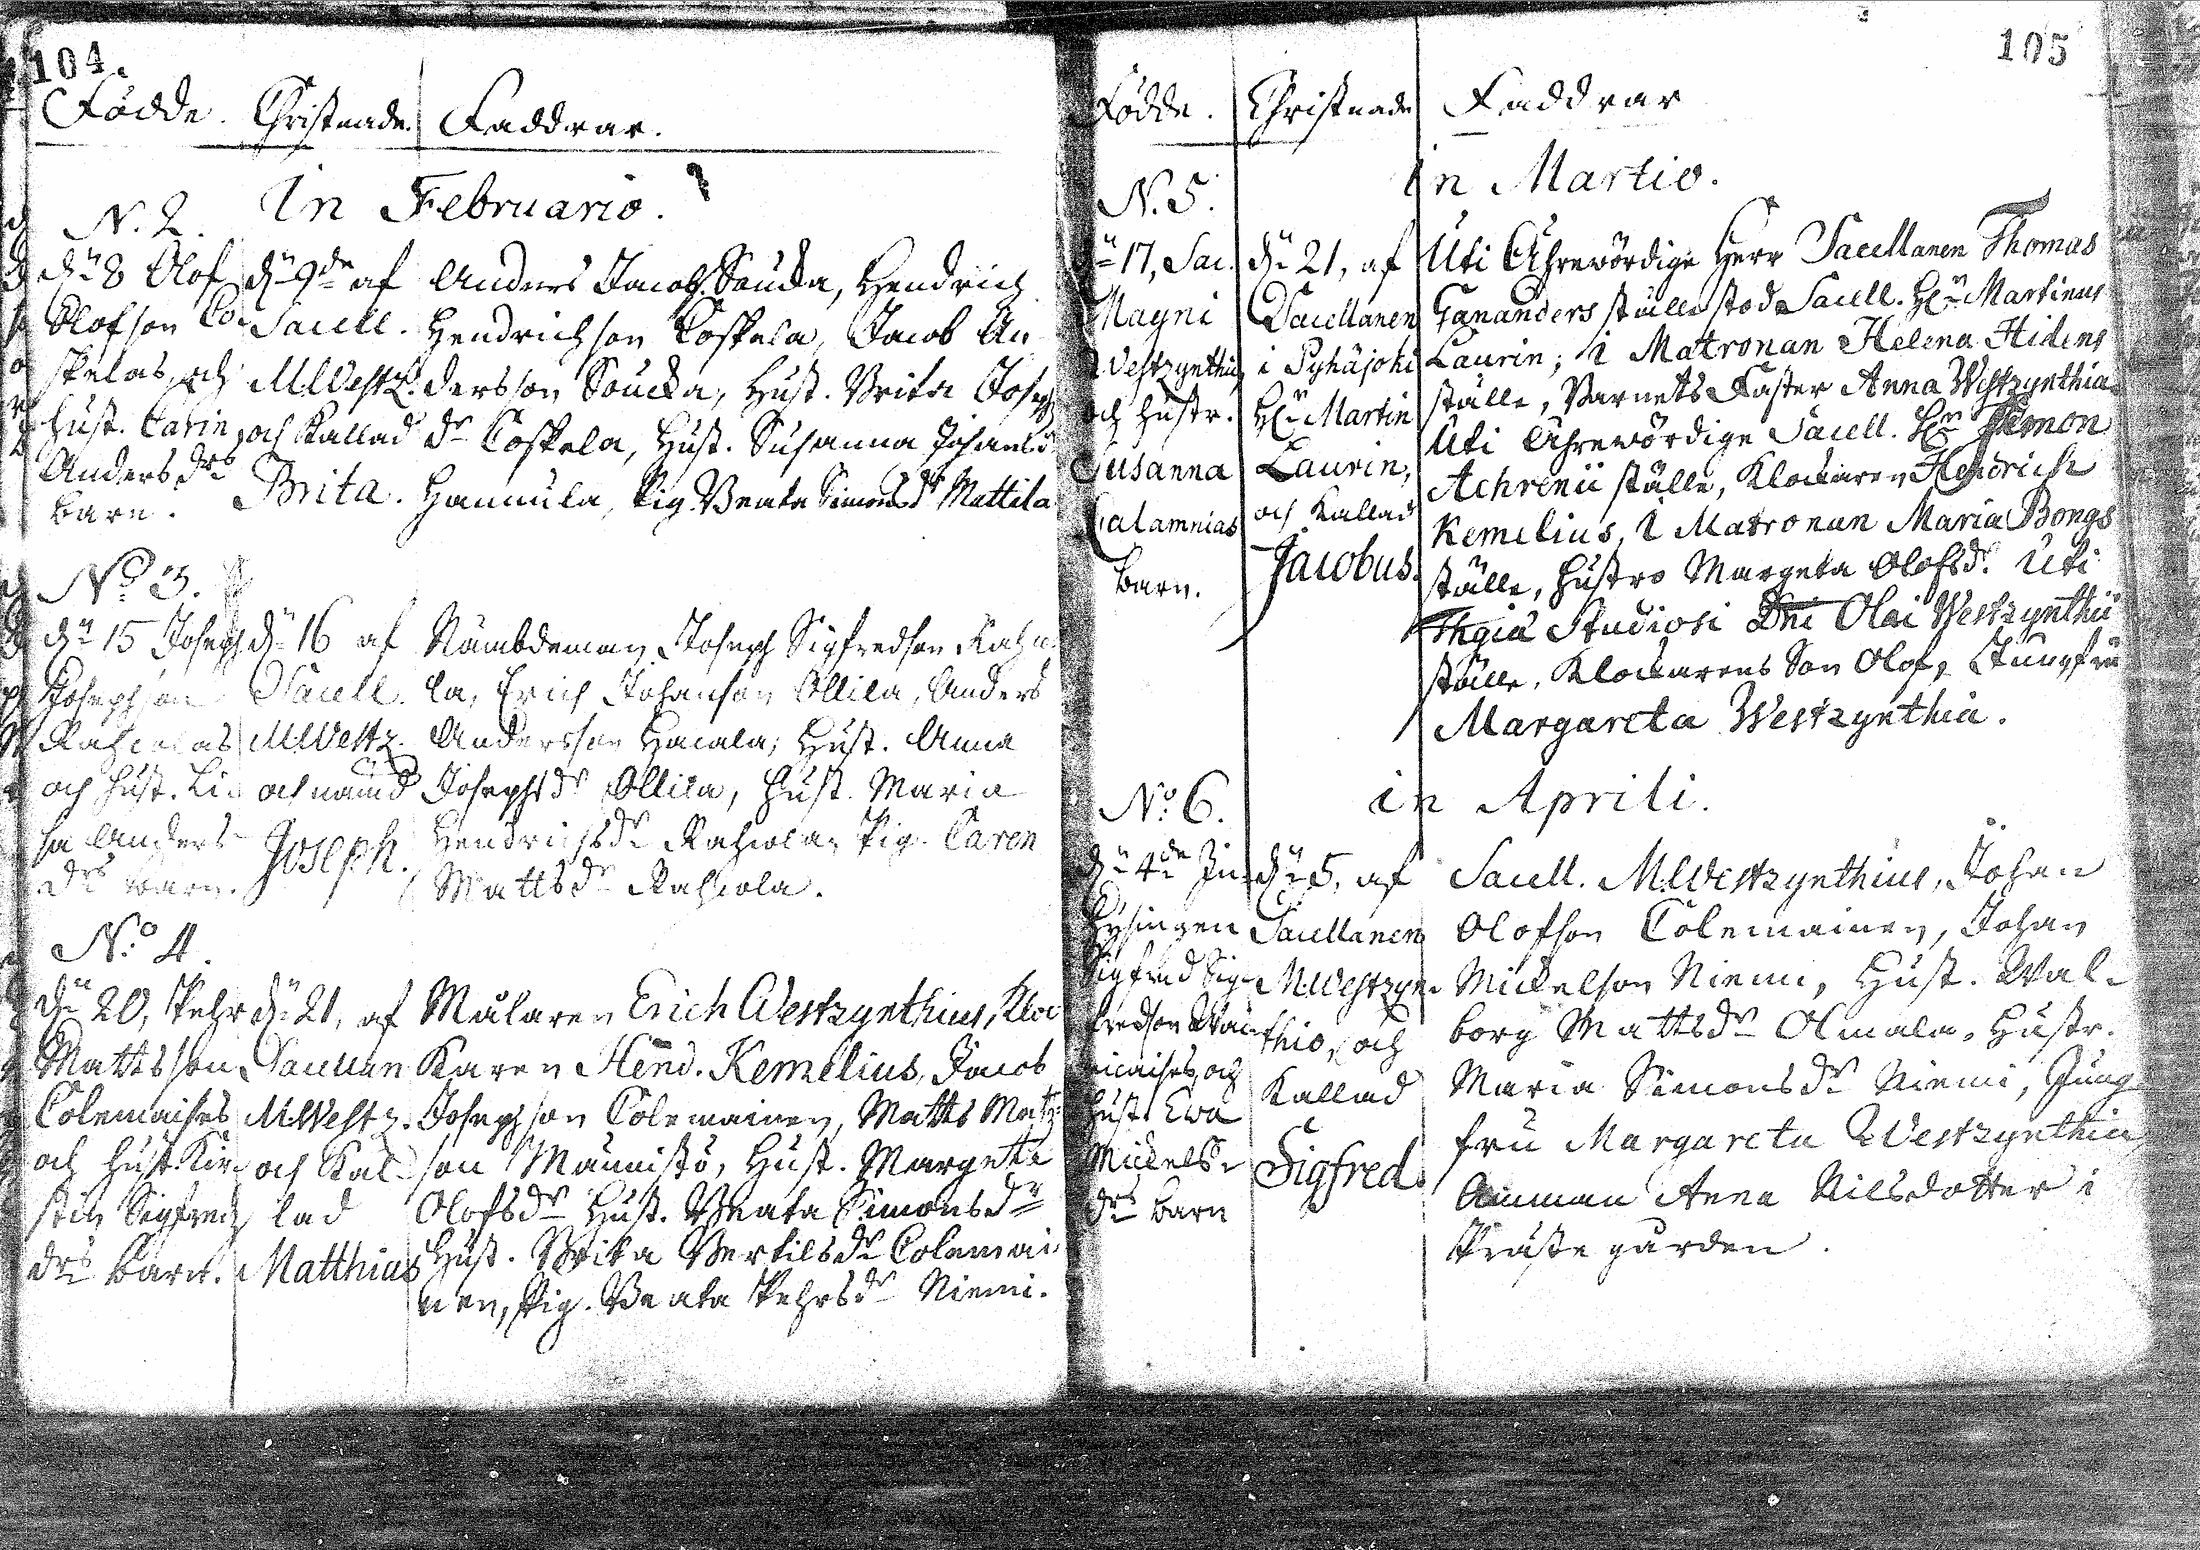 104.
Födde. Christnade. Faddrar.
In Februario.
N. 2.
dn 8 Olof
Olofson Co-
skelas, och
hust. Carin
Anders drs
barn.
dn 9de af
Sacell.
MWestz.
och kallad
Brita.
Anders Jacobs. Soucka, Hendrich
Hendrichson Coskela, Jacob An
dersson Soucka, Hust. Brita Joseph
dr Coskela, Hust. Susanna Johans d.
Hannula, Pig. Beata Simons dr Mattila
No 3.
dn 15 Joseph
Josephson
Rahiolas
och hust. Li-
sa Anders
drs barn.
dn 16 af
Sacell.
MWestz.
och nämd
Joseph.
Nämbdeman Joseph Sigfredson Rahio
la, Erich Johanson Ollila, Anders
Andersson Haiala, Hust. Anna
Josephs dr Ollila, Hust. Maria
Hendrichs dr Rahiola, Pig. Caren
Matts dr Rahiola.
No 4.
dn 20, Pehr
Mattsson
Tolemaises
och hust. Kir-
stin Sigfreds
drs barn.
dn 21, af
Sacellan
MWestz.
och Kal-
lad
Matthias
Målaren Erich Westzynthius, Kloc
karen Hend. Kemelius, Jacob
Josephson Tolemainen, Matts Matts
son Männistö, Hust. Margeta
Olofs dr Hust. Beata Simons dr
Hust. Brita Bertils dr Tolemai-
nen, Pig. Beata Pehrs dr Niemi.
105
Födde. Christnade Faddrar
in Martio.
N. 5.
dn 17, Sac.
Magni
Westzynthii
och hustr.
Susanna
Calamnias
barn.
dn 21, af
Sacellanen
i Pyhäjoki
Hr Martin
Laurin,
och kallad
Jacobus.
Uti Ährewördige Herr Sacellanen Thomas
Gananders ställe stod Sacell. Hr Martinus
Laurin; i Matronan Helena Hidens
ställe, Barnets Faster Anna Westzynthia
Uti Ährewördige Sacell. Hr Simon
Achrenii ställe, Klockaren Hendrich
Kemelius, i Matronan Maria Bongs
ställe, Hustro Margeta Olofsdr. Uti
Studiosi Dni Olai Westzynthii
ställe, Klockarens Son Olof, Jungfru
Margareta Westzynthia.
in Aprili.
No 6.
dn 4de In-
hysingen
Sigfred Sig-
fredson
och
hust. Ewa
Mickels-
drs barn
dn 5, af
Sacellanen
MWestzyn-
thio, och
kallad
Sigfred.
Sacell. MWestzynthius, Johan
Olofson Tolemainen, Johan
Mickelson Niemi, Hust. Wal-
borg Matts dr Olmala, Hustr.
Maria Simons dr Niemi, Jung
fru Margareta Westzynthia
Amman Anna Nilsdotter i
Prästegården.